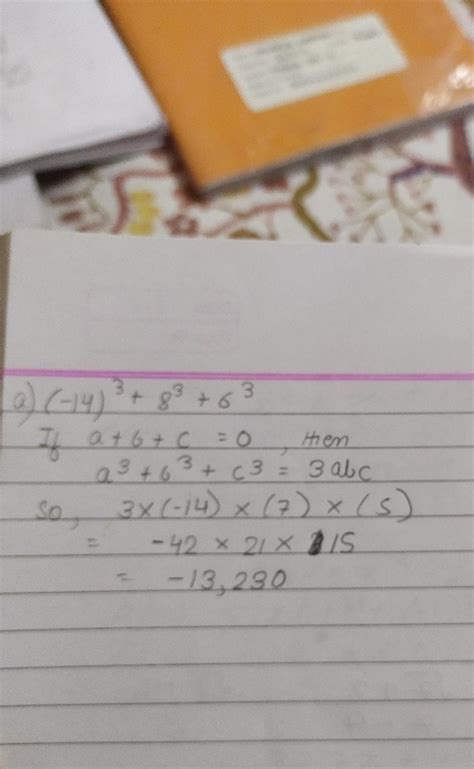 a) (-14)³ + 8³ + 6³
If a + b + c = 0, then
a³ + b³ + c³ = 3abc
So, 3 × (-14) × (7) × (5)
= -42 × 21 × 15
= -13,230